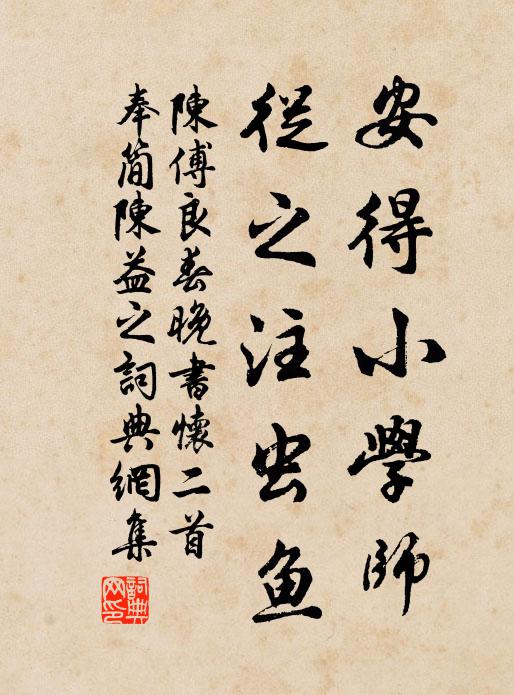 安得小學師
從之注虫鱼
陳傅良春晚書懷二首
奉簡陳益之詞典網集
詞典网印